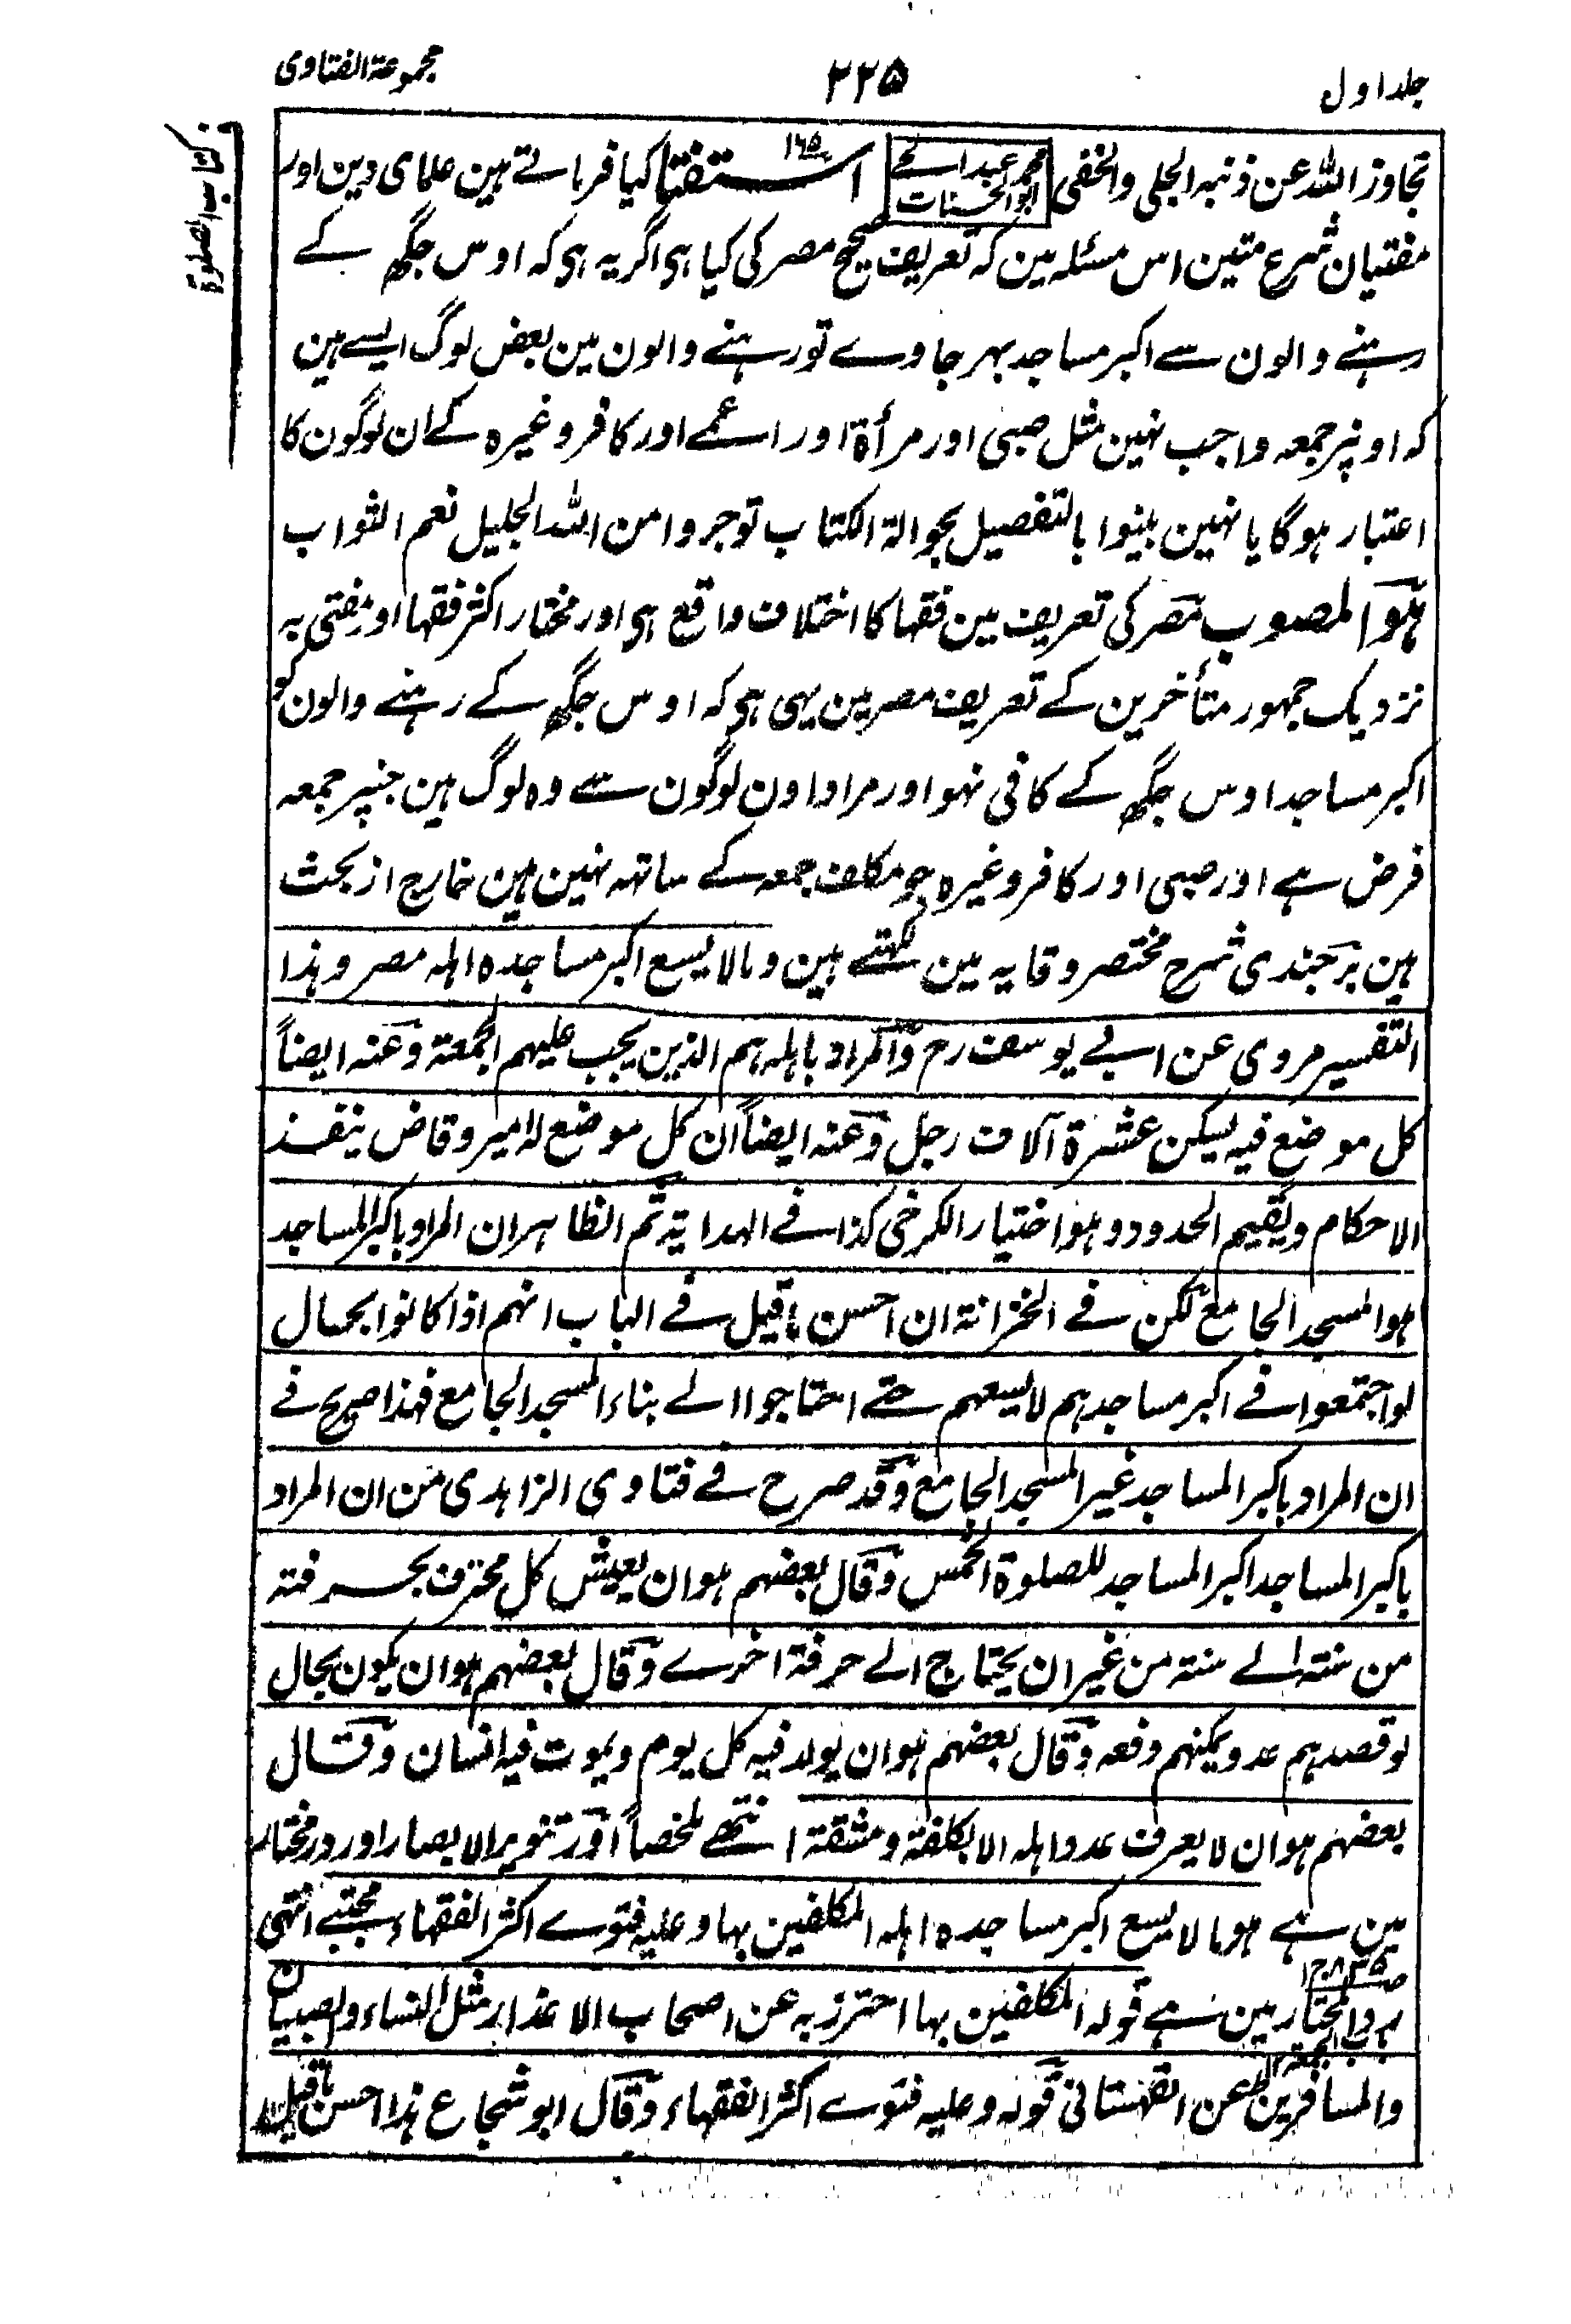 جلد اول
۲۲۵
مجموعۃ الفتاوی
کتاب الصلوۃ
تجاوز اللہ عن ذنبہ الجلی والخفی محمد عبدالحے ابوالحسنات استفتا ۱۶۵ کیا فرماتے ہین علمای دین اور
مفتیان شرع متین اس مسئلہ مین کہ تعریف صحیح مصر کی کیا ہی اگر یہ ہی کہ اوس جگھ کے
رہنے والون سے اکبر مساجد بہر جاوے تو رہنے والون مین بعض لوگ ایسے ہین
کہ اونپر جمعہ واجب نہین مثل صبی اور مرأۃ اور اعمے اور کافر وغیرہ کے ان لوگون کا
اعتبار ہوگا یا نہین بینوا بالتفصیل بحوالۃ الکتاب توجروا من اللہ الجلیل نعم الثواب
ہو المصوب مصر کی تعریف مین فقہا کا اختلاف واقع ہی اور مختار اکثر فقہا اور مفتی بہ
نزدیک جمہور متأخرین کے تعریف مصر مین یہی ہی کہ اوس جگھ کے رہنے والون کو
اکبر مساجد اوس جگھ کے کافی نہو اور مراد اون لوگون سے وہ لوگ ہین جنپر جمعہ
فرض ہے اور صبی اور کافر وغیرہ جو مکلف جمعہ کے ساتھہ نہین ہین خارج از بحث
ہین برجندی شرح مختصر وقایہ مین لکہتے ہین وما لا یسع اکبر مساجدہ اہلہ مصر وہذا
التفسیر مروی عن ابے یوسف رح والمراد باہلہ ہم الذین یجب علیہم الجمعۃ وعنہ ایضاً
کل موضع فیہ یسکن عشرۃ آلاف رجل وعنہ ایضاً ان کل موضع لہ امیر وقاض ینفذ
الاحکام ویقیم الحدود وہو اختیار الکرخی کذا فے الہدایۃ ثم الظاہر ان المراد باکبر المساجد
ہو المسجد الجامع لکن فے الخزانۃ ان احسن ما قیل فے الباب انہم اذا کانوا بحال
لو اجتمعوا فے اکبر مساجدہم لا یسعہم حتے احتاجوا الے بناء المسجد الجامع فہذا صریح فے
ان المراد باکبر المساجد غیر المسجد الجامع وقد صرح فے فتاوی الزاہدی من ان المراد
باکبر المساجد اکبر المساجد للصلوۃ الخمس وقال بعضہم ہو ان یعیش کل محترف بحرفتہ
من سنۃ الے سنۃ من غیر ان یحتاج الے حرفۃ اخرے وقال بعضہم ہو ان یکون بحال
لو قصدہم عدو یمکنہم دفعہ وقال بعضہم ہو ان یولد فیہ کل یوم ویموت فیہ انسان وقال
بعضہم ہو ان لا یعرف عدد اہلہ الا بکلفۃ ومشقۃ انتہے ملخصاً اور تنویر الابصار اور در مختار
مین ہے ہو ما لا یسع اکبر مساجدہ اہلہ المکلفین بہا وعلیہ فتوے اکثر الفقہاء مجتبے انتہی
رد المحتار مین ہے قولہ المکلفین بہا احترز بہ عن اصحاب الاعذار مثل النساء والصبیان
والمسافرین ط عن القہستانی قولہ وعلیہ فتوے اکثر الفقہاء وقال ابو شجاع ہذا احسن ما قیل